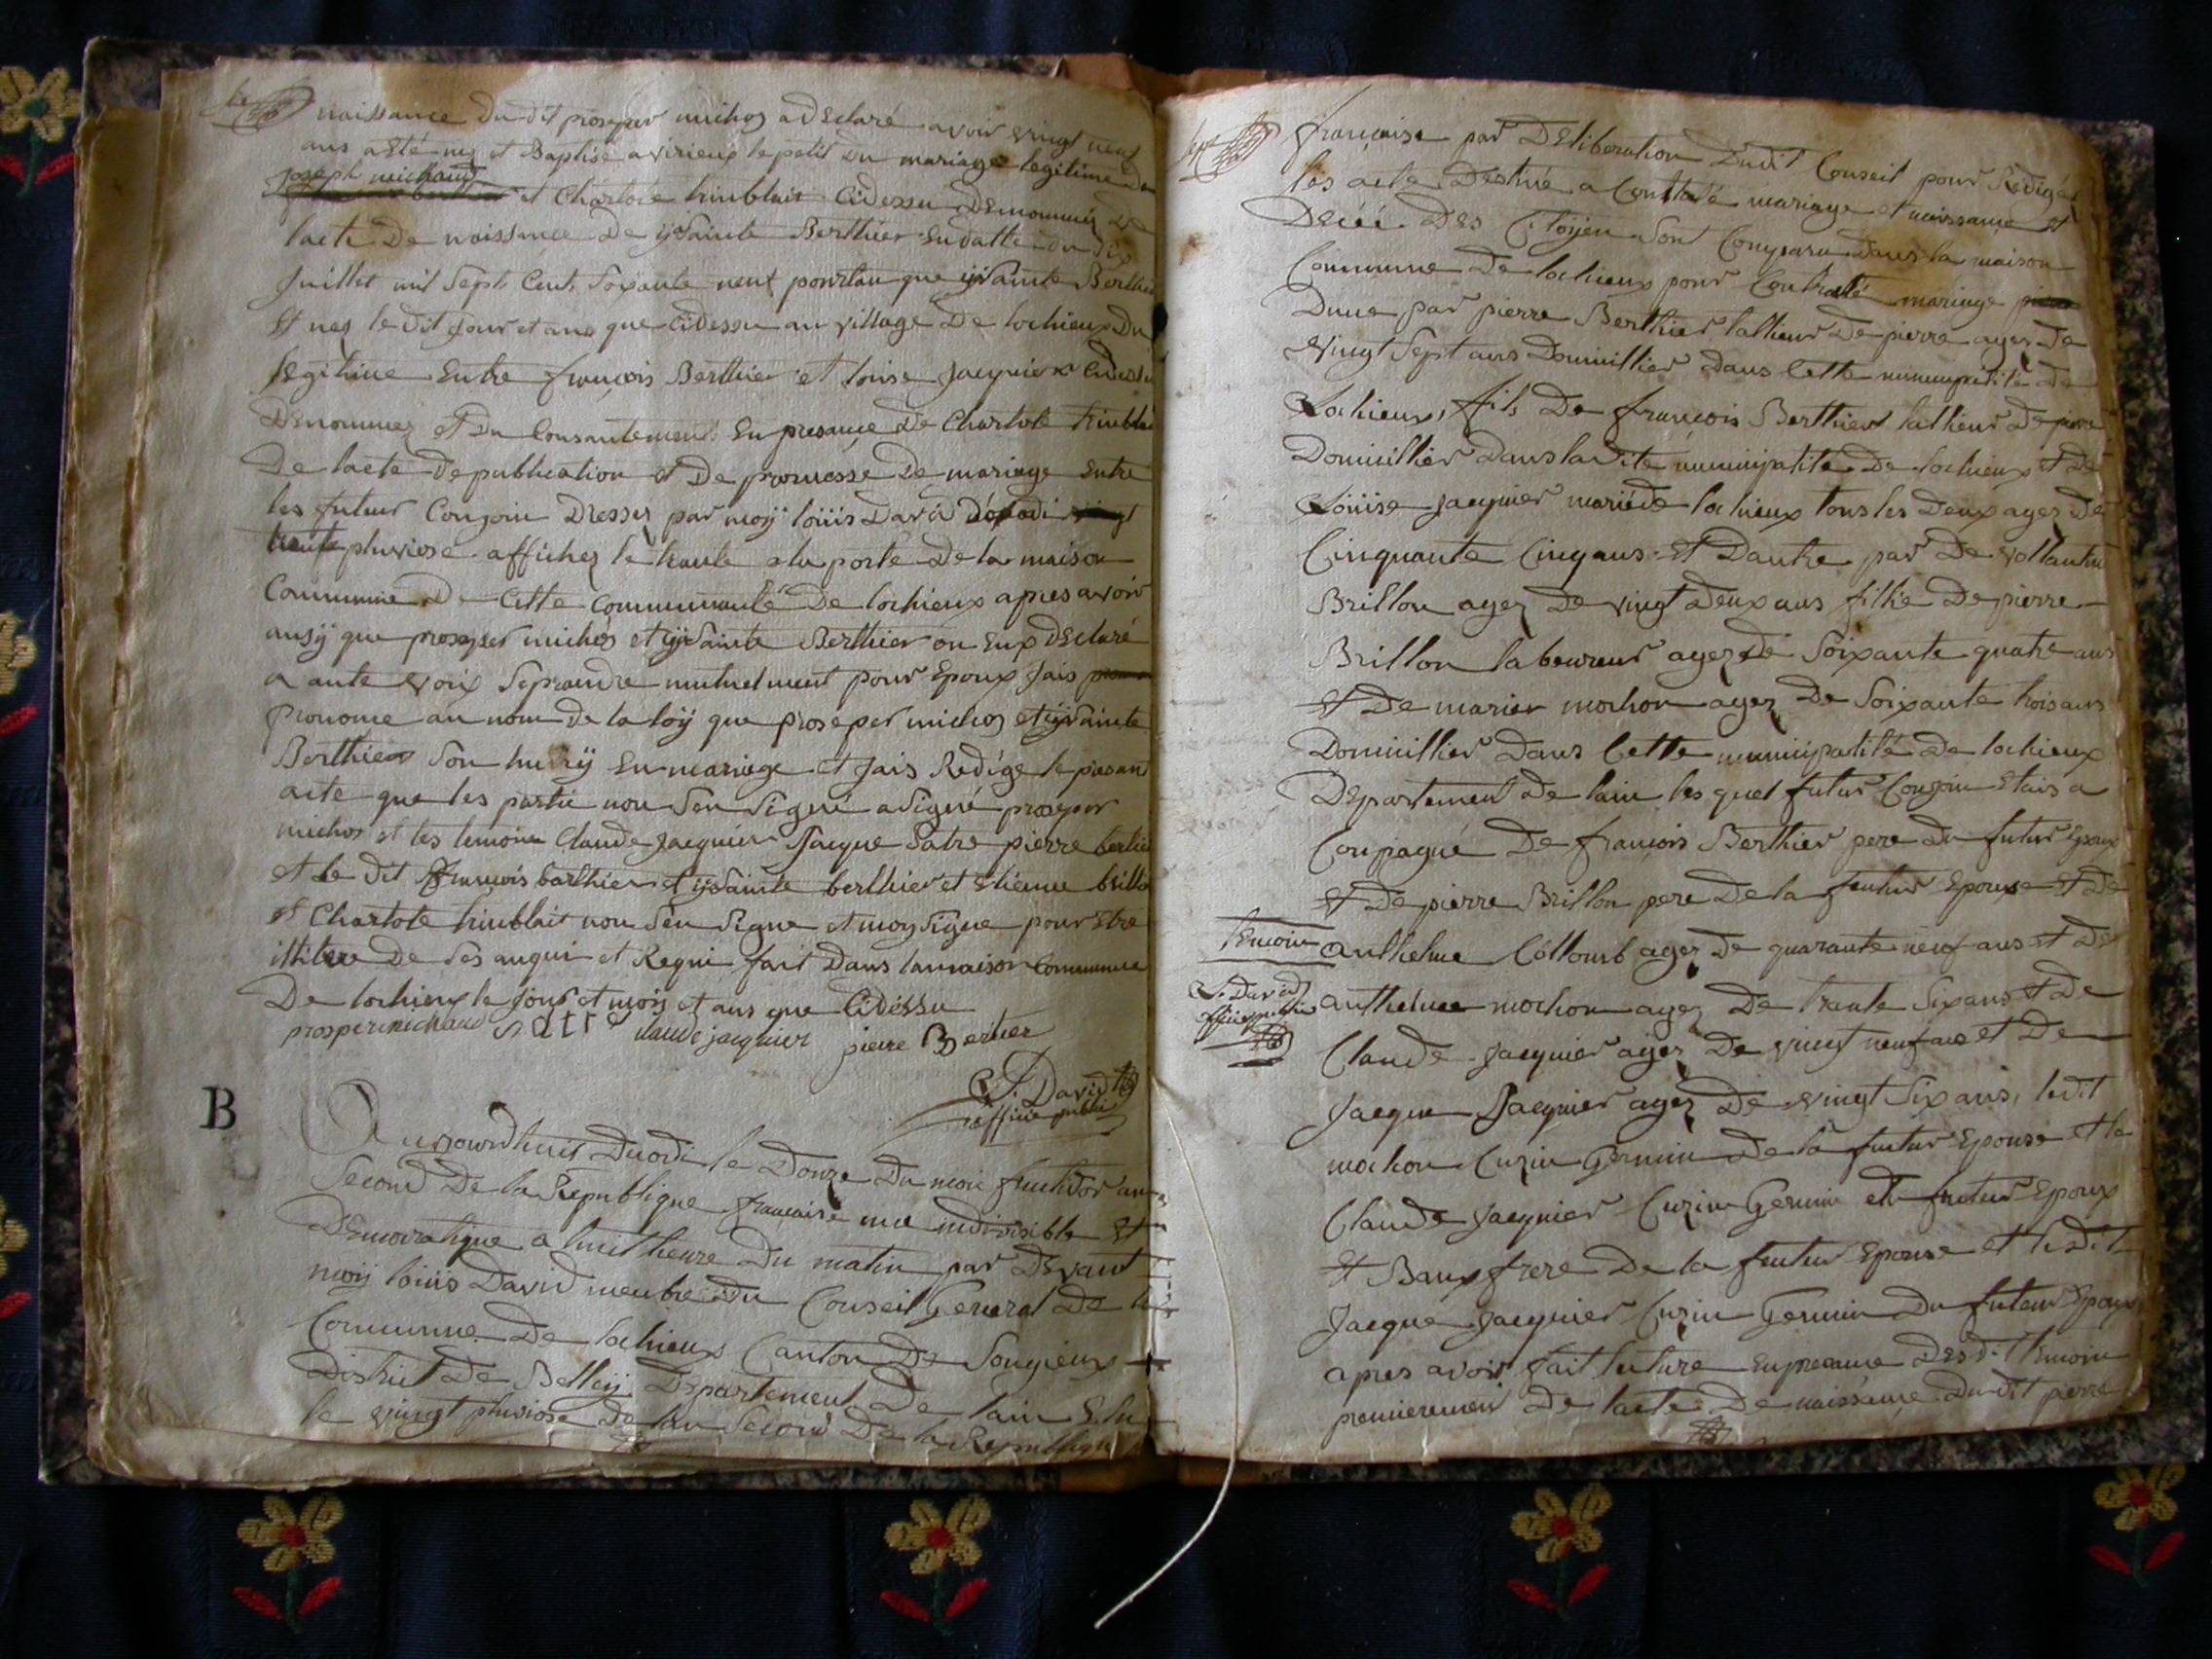 naissance du dit prosper michoz a declaré avoir vingt neuf
ans a eté nez et Baptisé a virieux le petit du mariage legitime de
joseph michaud
et Charlote trinblait Cidessu denommés de
lacte De naissance De ijsainte Berthier en datte du dix
Juillet mil Sept Cent Soixante neuf portan que ijsainte Berthier
Et nez le dit jour et ans que Cidessu au village De lochieux Du
legitime Entre françois Berthier et louise jacquier Cidessu
Denommez et Du Consantement En presançe De Charlote trinblai
De lacte De publication et De promesse De mariage Entre
les futur Conjoin Dressez par moÿ loüis David
trente pluviose affichez le haute a la porte De la maison
Commune De Cette Communauté De lochieux apres avoir
ausÿ que prosper michós et ijsainte Berthier on Eux Declaré
a aute voix Seprandre mutuelment pour Epoux Jais
prononce au nom De la loÿ que prosper michoz et ijsainte
Berthier Son En mariage et Jais Redige le presant
acte que les partie non Sen Signé a Signé prosper
michos et les temoin Claude Jacquier Jacque Satre pierre bertie
et le dit françois barthier et ijsainte berthier et Etienne brillo
et Charlote trinblait non Sen Signe et moy Signe pour Etre
De Ses anqui et Requi fait Dans la maison Commune
De lochieux le Jour et mois et ans que Cidéssu
prosper michaud Satre claude jacquier pierre Bertier
L. David
officie public
B
Aujourdhuis Duodi le Douze Du moi fructidor an
Second De la Republique francaise une indivisible Et
Democratique a huit heure Du matin par Devant
moÿ loüis David menbre du Conseil General De la
Commune De lochieux Canton De Songieux
District De Belleÿ Departement De lain Elu
le vingt pluviose De lan Second De la Republique
sept
française par Deliberation Dudit Conseil pour Redigér
les acte Destiné a Constaté mariage et naissance et
Décéé Des Citoÿen Sont Conparu Dans la maison
Commune De lochieux pour Contracté mariage
Dune par pierre Berthier tallieur De pierre agez De
vingt Sept ans Domicillier Dans Cette municipalité De
Lochieux fils De françois Berthier tallieur De pierre
Domicillier Dans la dite municipalité De lochieux et De
Loüise jacquier marié de lochieux tous les Deux agez De
Cinquante Cinq ans Et Dautre par De vollantine
Brillon agez De vingt Deux ans fillie De pierre
Brillon laboureur agez de Soixante quatre ans
et De marier mochon agez De Soixante trois ans
Domicillier Dans Cette municipalité De lochieux
Departement De lain les quel futur Conjoin Etais a
Conpagné De françois Berthier pere Du futur Epoux
et De pierre Brillon pere De la futur Epouse et De
temoin anthelme Collomb agez De quarante neuf ans et De
L. David
officie public
anthelme mochon agez De trente Six ans et De
Claude Jacquier agez De vingt neuf ans et De
Jacque Jacquier agez De vingt Six ans, ledit
mochon Cuzin Germin De la futur Epouse et le
Claude Jacquier Cuzin Germin du futur Epoux
et Baux frere De la futur Epouse et ledit
Jacque Jacquier Cuzin Germin Du futur Epoux
apres avoir fait lecture En presance Desdit temoin
premierement De lacte De naissance Dudit pierre